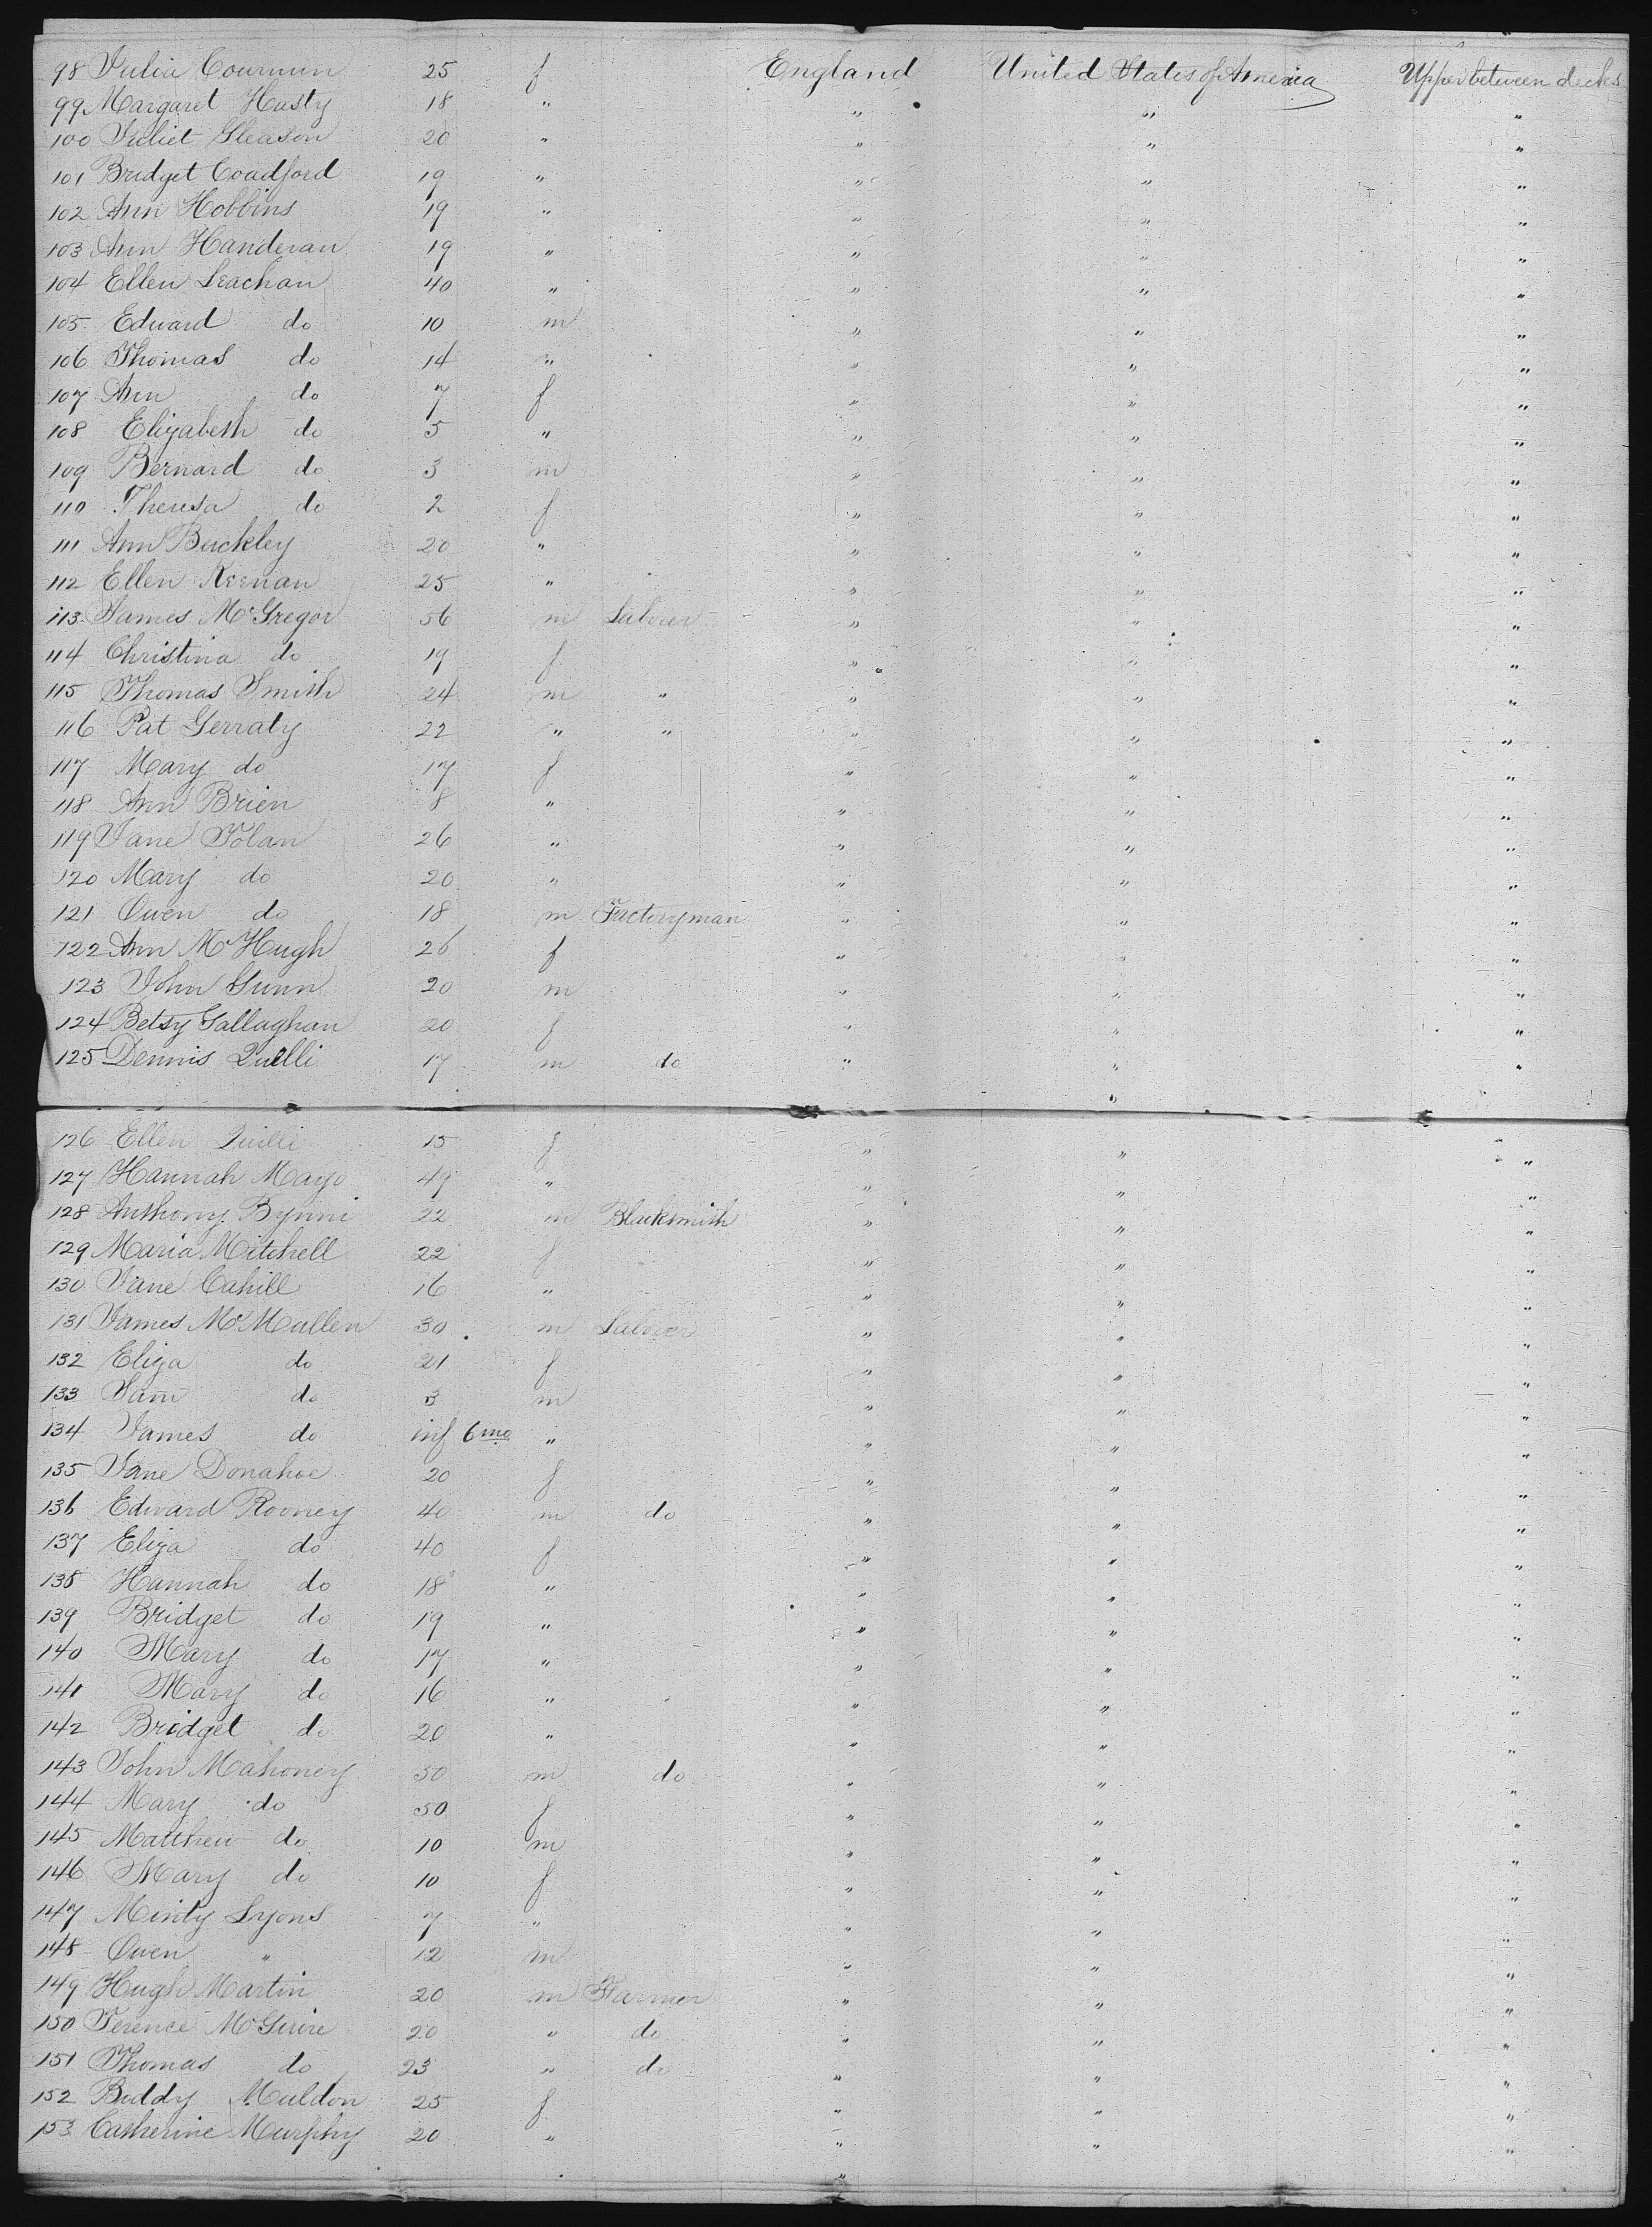 98 Julia Cournun 25 f England United States of America Upper between decks
99 Margaret Hasty 18 " " " "
100 Juliet Gleason 20 " " " "
101 Bridget Coadford 19 " " " "
102 Ann Hobbins 19 " " " "
103 Ann Handeran 19 " " " "
104 Ellen Leachan 40 " " " "
105 Edward do 10 m " " "
106 Thomas do 14 " " " "
107 Ann do 7 f " " "
108 Elizabeth do 5 " " " "
109 Bernard do 3 m " " "
110 Theresa do 2 f " " "
111 Ann Buckley 20 " " " "
112 Ellen Keenan 25 " " " "
113 James McGregor 56 m Laborer " " "
114 Christina do 19 f " " "
115 Thomas Smith 24 m " " " "
116 Pat Gerraty 22 " " " " "
117 Mary do 17 f " " "
118 Ann Brien 8 " " " "
119 Jane Tolan 26 " " " "
120 Mary do 20 " " " "
121 Owen do 18 m Factoryman " " "
122 Ann McHugh 26 f " " "
123 John Gunn 20 m " " "
124 Betsy Gallaghan 20 f " " "
125 Dennis Quilli 17 m do " " "
"
126 Ellen Quilli 15 f " " "
127 Hannah Mayo 49 " " " "
128 Anthony Bynni 22 m Blacksmith " " "
129 Maria Mitchell 22 f " " "
130 Jane Cahill 16 " " " "
131 James McMullen 30 m Laborer " " "
132 Eliza do 21 f " " "
133 Sam do 3 m " " "
134 James do inf 6 mo " " " "
135 Jane Donahoe 20 f " " "
136 Edward Rooney 40 m do " " "
137 Eliza do 40 f " " "
138 Hannah do 18 " " " "
139 Bridget do 19 " " " "
140 Mary do 17 " " " "
141 Mary do 16 " " " "
142 Bridget do 20 " " " "
143 John Mahoney 50 m do " " "
144 Mary do 50 f " " "
145 Matthew do 10 m " " "
146 Mary do 10 f " " "
147 Minty Lyons 7 " " " "
148 Owen " 12 m " " "
149 Hugh Martin 20 m Farmer " " "
150 Terence McGuire 20 " do " " "
151 Thomas do 23 " do " " "
152 Biddy Muldon 25 f " " "
153 Catherine Murphy 20 " " " "
"